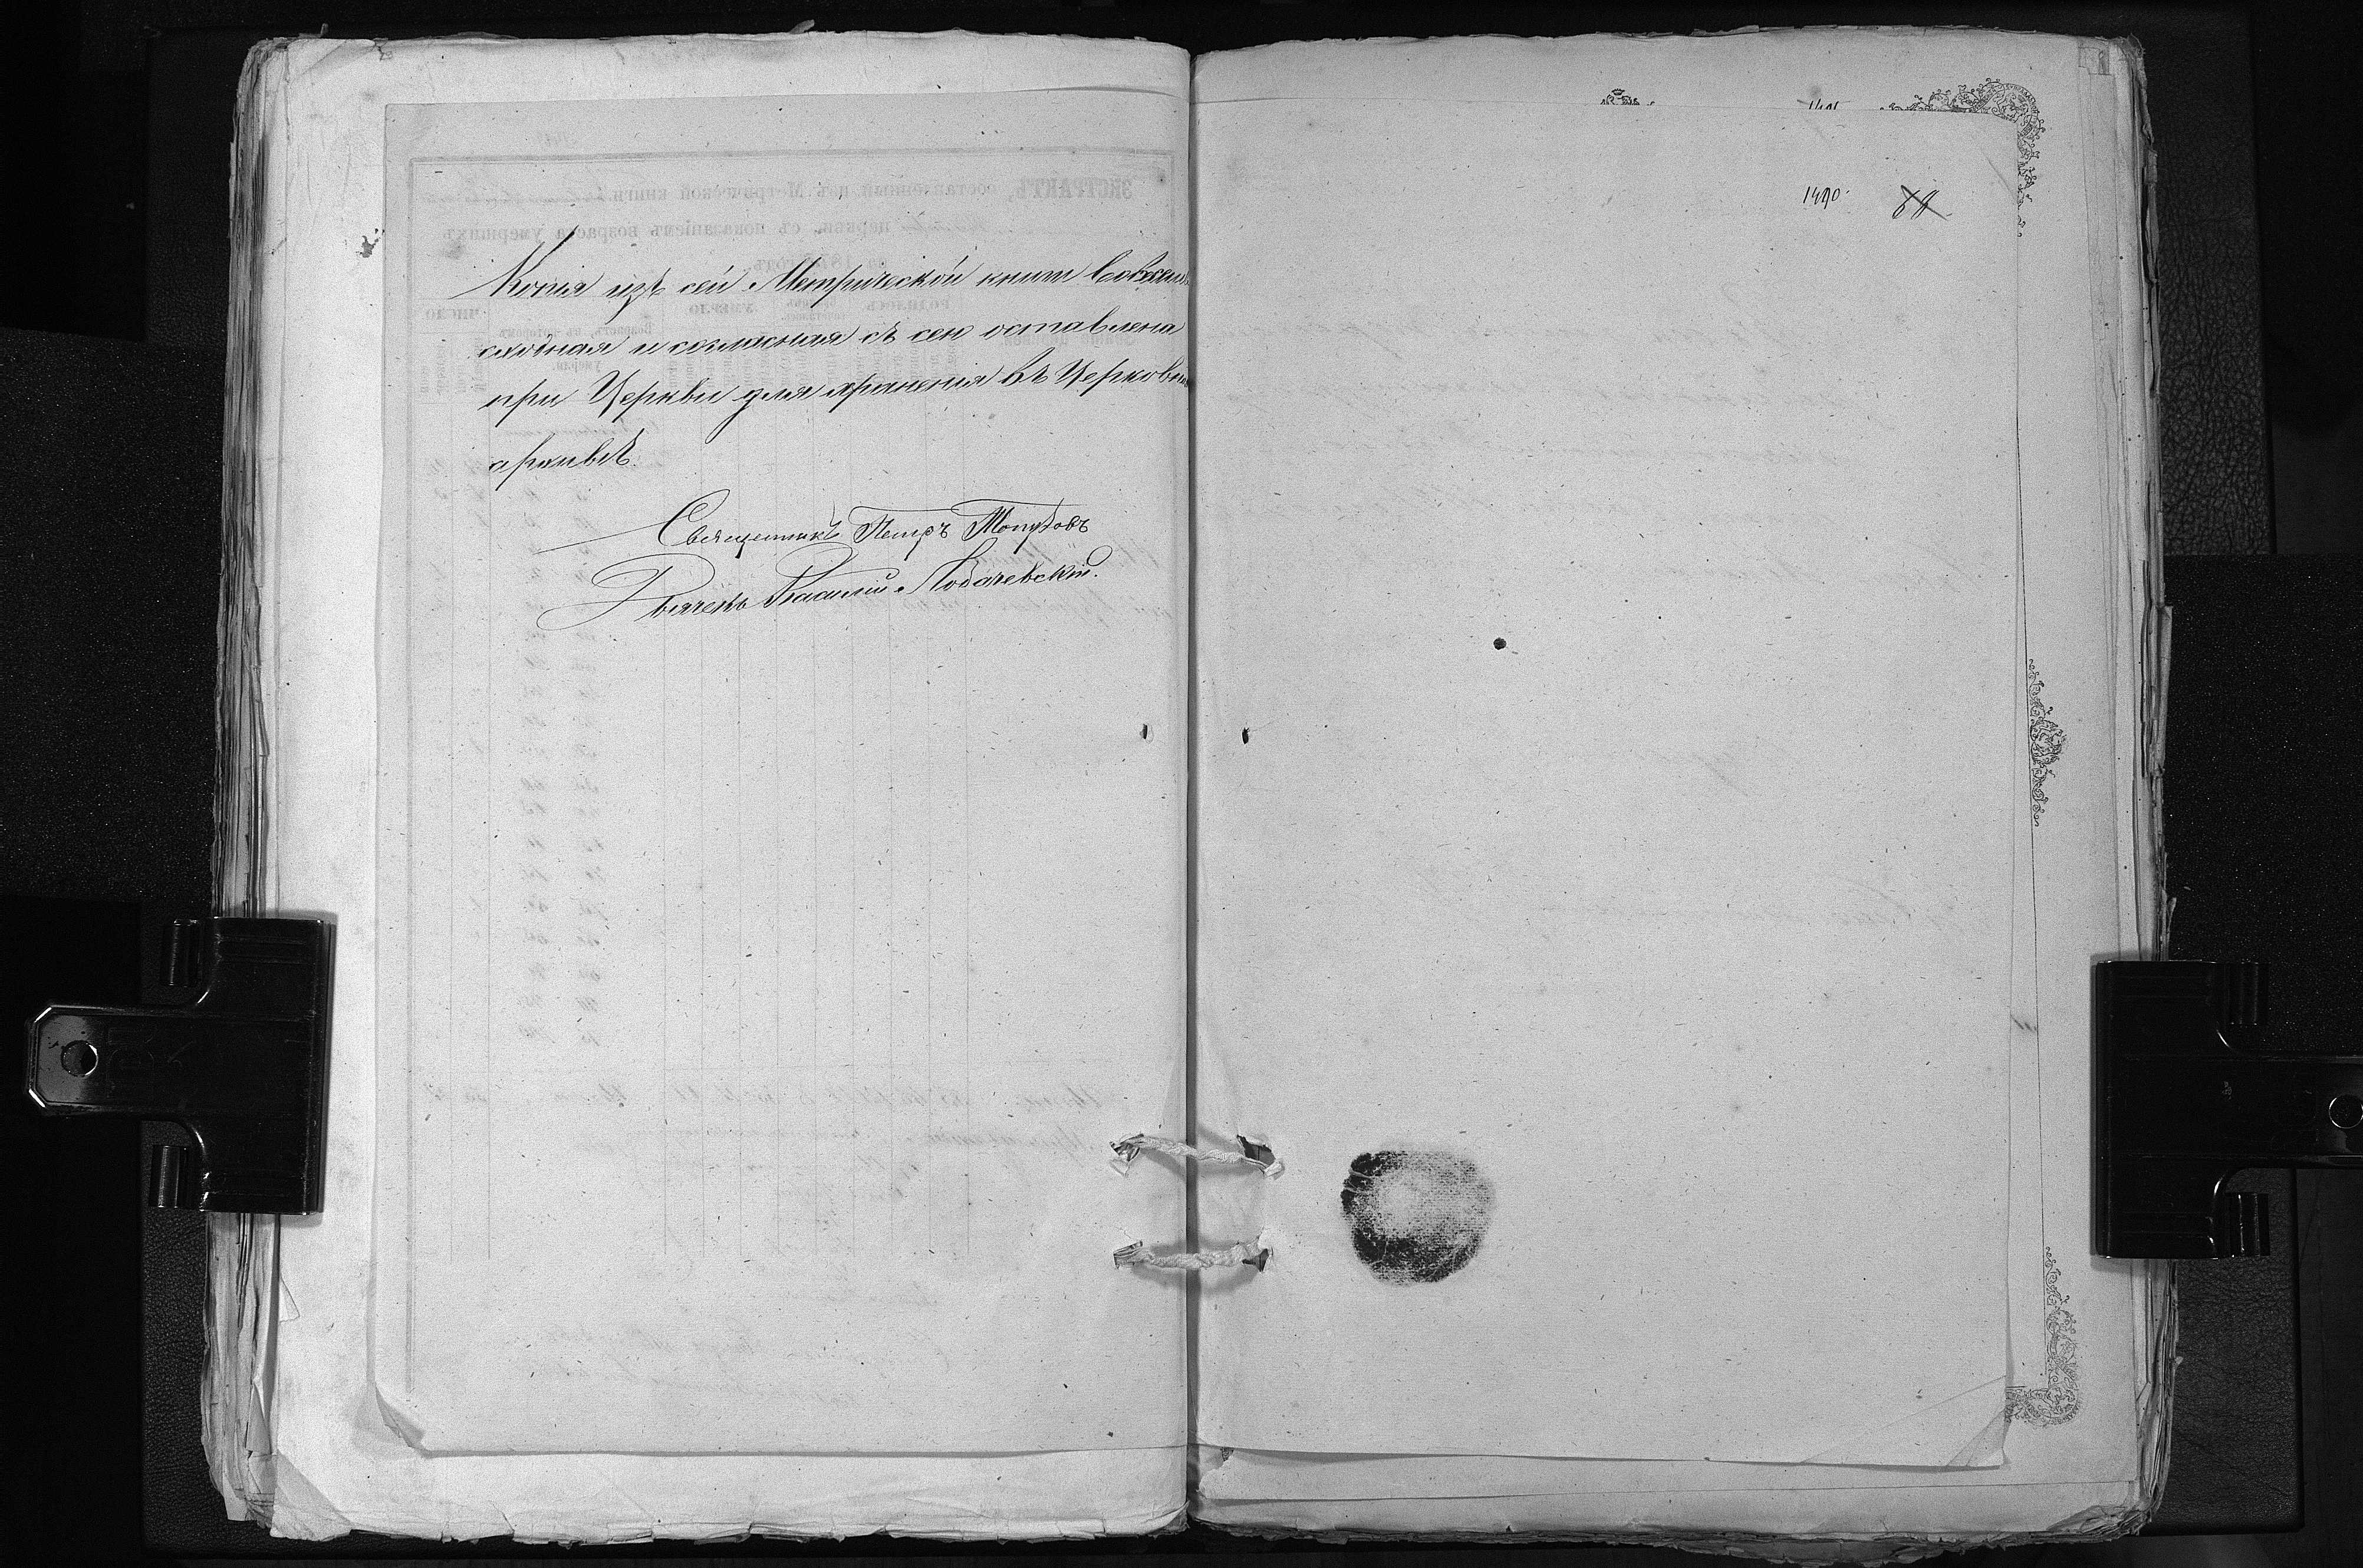 Копія изъ сей Метрической книги во всемъ
сходная и согласная съ сею оставлена
при Церкви для храненія въ Церковн
архивѣ.
Священникъ Петръ
Дьячекъ Василій Лобачевскій.
1490
88